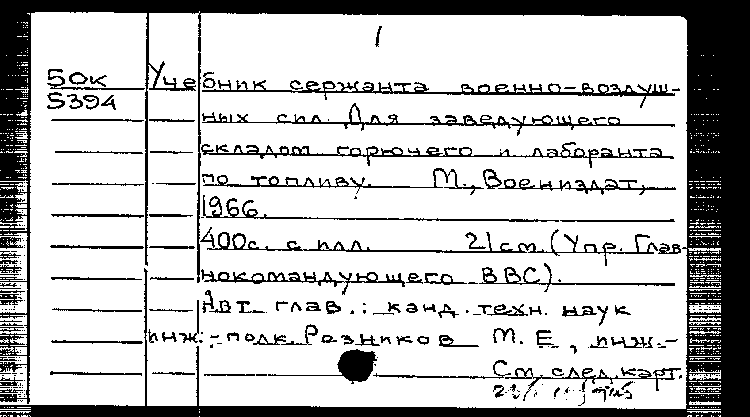 1
50к Учебник сержанта военно-воздуш-
S394 ных сил. Для заведующего
складом горючего и лаборанта
по топливу. М., Воениздат,
1966.
400с. с илл. 21 см. (Упр. Глав-
нокомандующего ВВС).
Авт. глав.: канд. техн. наук
инж.-полк. Резников М. Е., инж.-
См. след. карт.